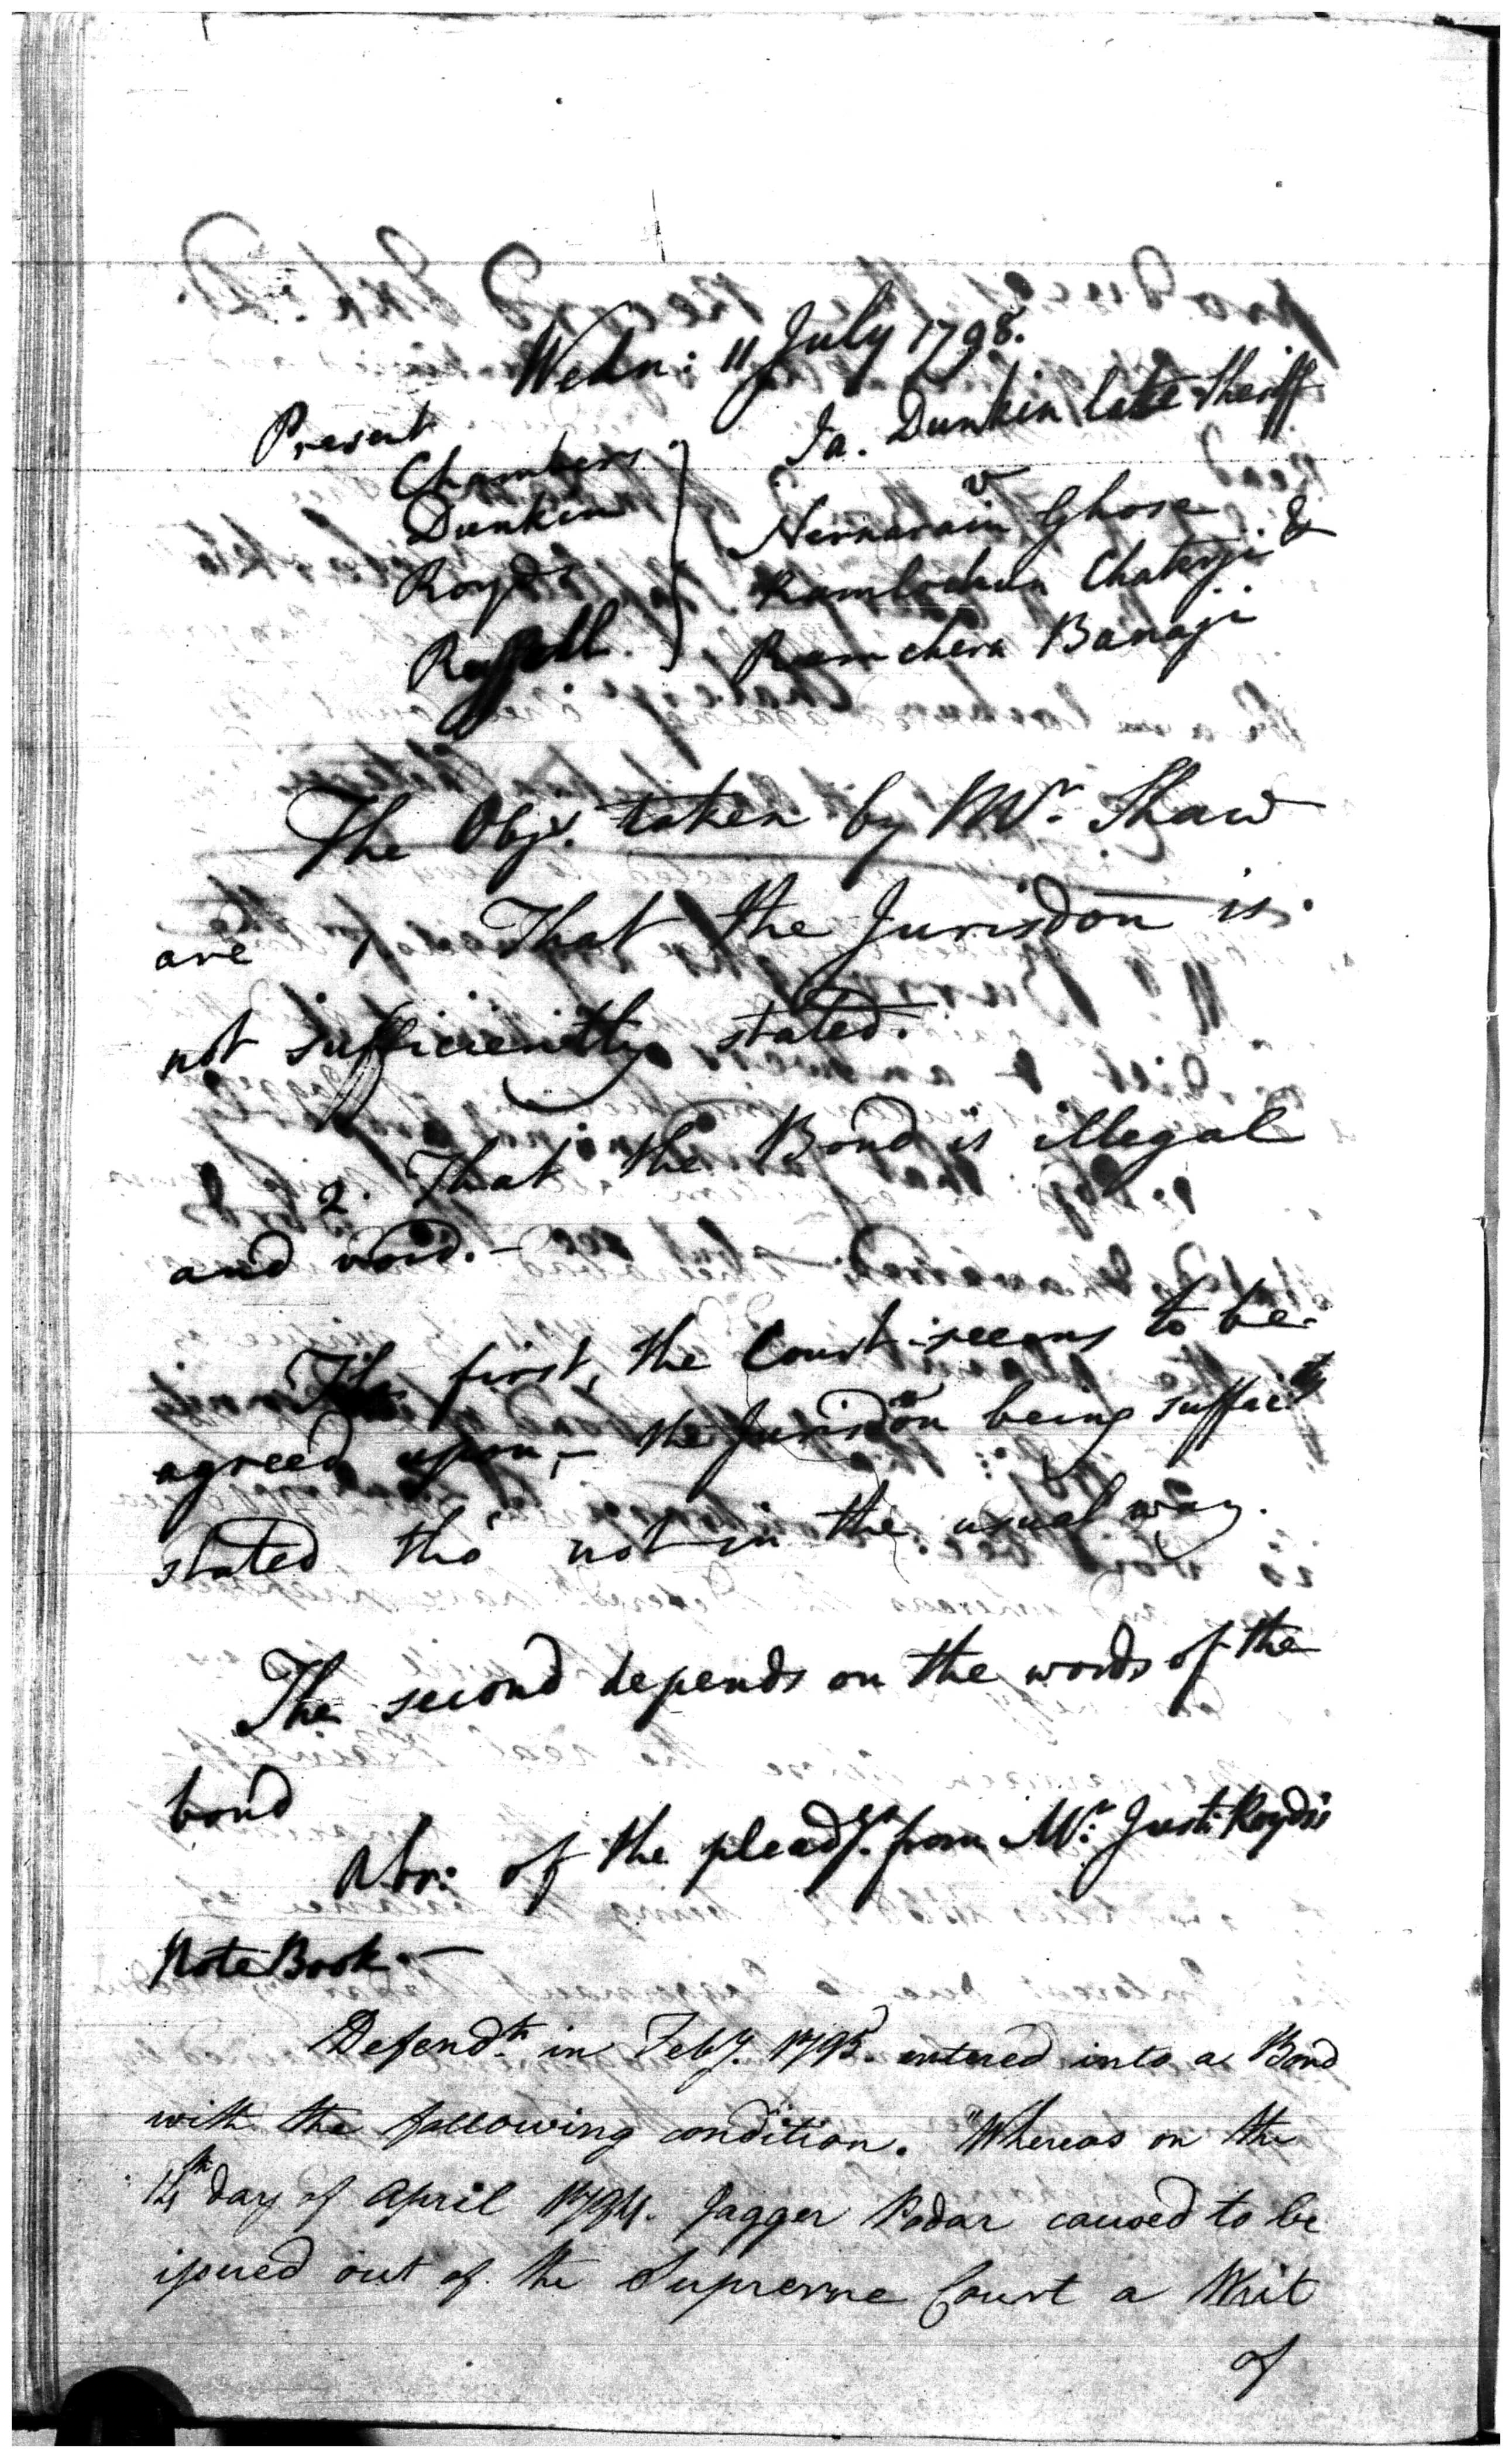 Wedn: 11 July 1798.
Present
Chambers
Dunkin
Royds
Russell.
Ja. Dunkin late Sheriff
v
Nernarain Ghose
Ramlochun Chaterji &
Ramchera Banaji
The Obj.s taken by Mr. Shaw
are 1. That the Jurisdon is
not sufficiently stated.
2. That the Bond is illegal
and void.-
The first, the Court seems to be
agreed upon,- the Jurisdon being suffacitly
stated tho' not in the usual way.
The second depends on the words of the
bond
Abr: of the pleadgs. from Mr. Justi: Royds's
Note Book.-
Defendts. in Feby. 1795. entered into a Bond
with the following condition. "Whereas on the
14th day of April 1794. Jagger Podar caused to be
issued out of the Supreme Court a Writ
of